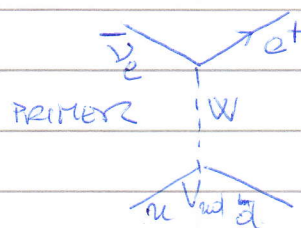 ν̄e e⁺
PRIMER W
u Vud d